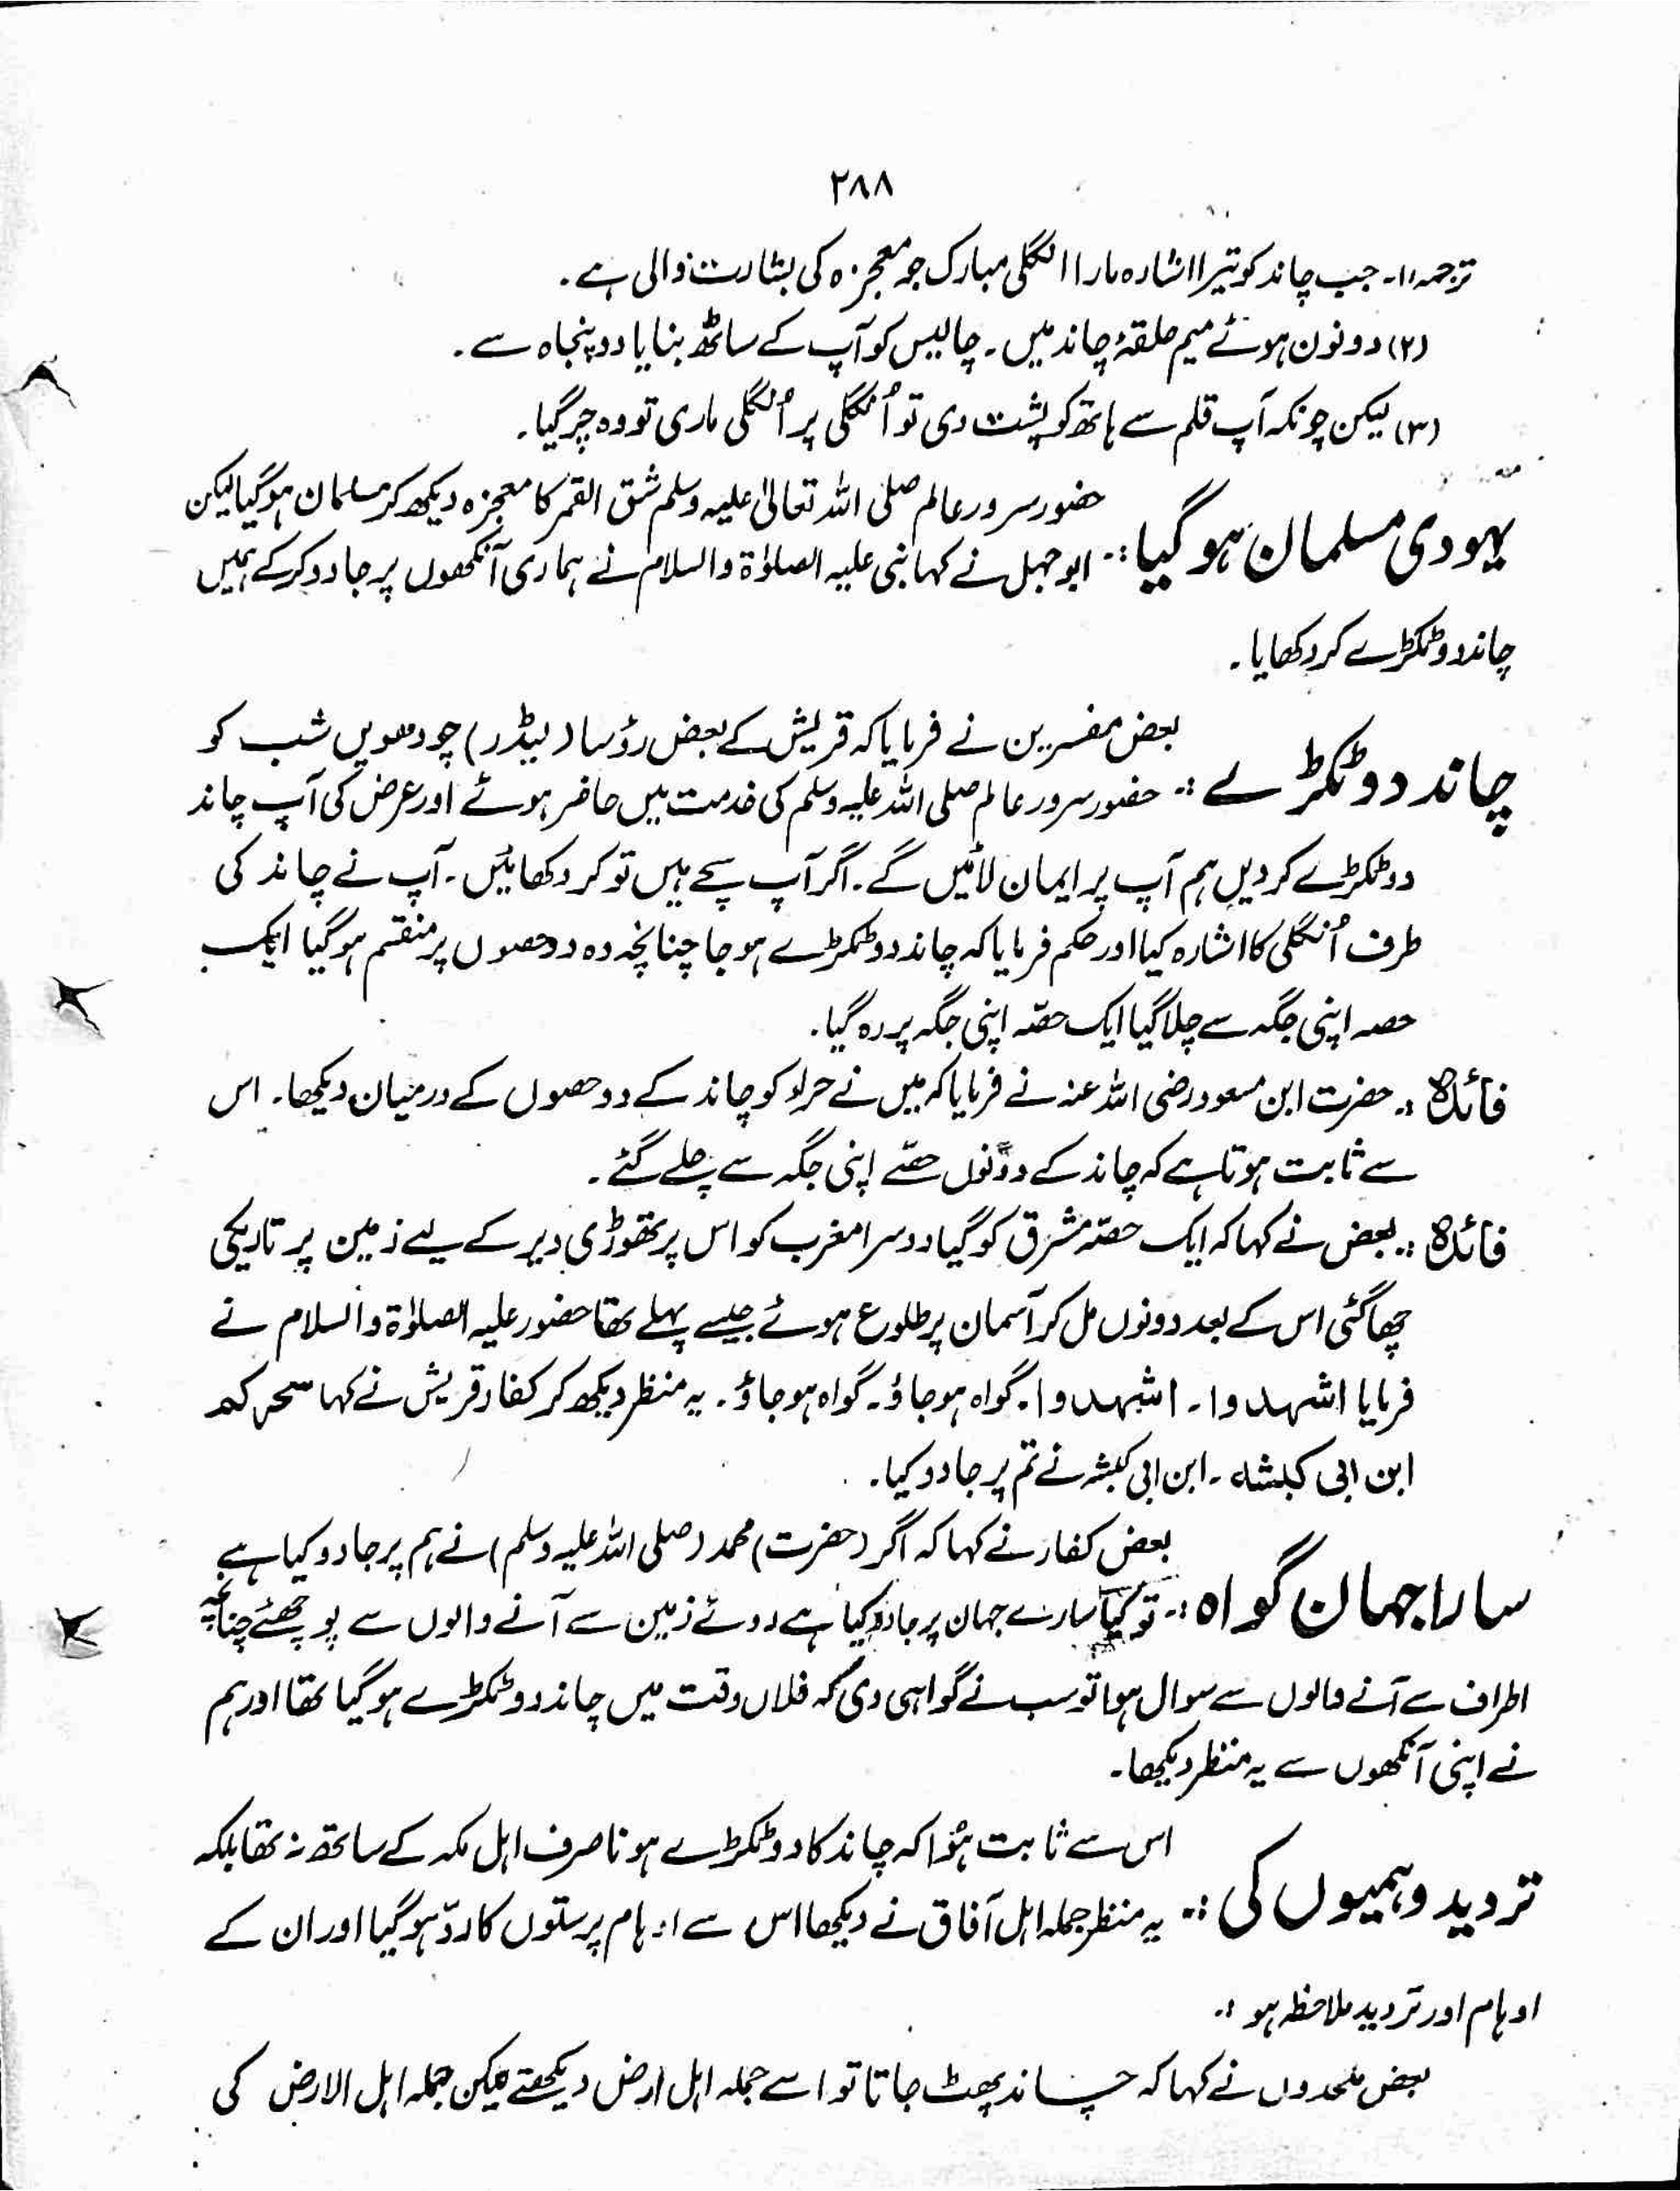 ۲۸۸
ترجمہ ۱۱۔ جب چاند کو تیرا اشارہ مارا انگلی مبارک جو معجزہ کی بشارت والی ہے۔
(۲) دو نون ہوئے میم حلقۂ چاند میں۔ چالیس کو آپ کے ساٹھ بنایا دو پنجاہ سے۔
(۳) لیکن چونکہ آپ قلم سے ہاتھ کو پشت دی تو اُنگلی پر اُنگلی ماری تو وہ چر گیا۔
یہودی مسلمان ہو گیا :۔ حضور سرور عالم صلی اللہ تعالیٰ علیہ وسلم شق القمر کا معجزہ دیکھ کر مسلمان ہو گیا لیکن
ابو جہل نے کہا نبی علیہ الصلوٰۃ والسلام نے ہماری آنکھوں پر جادو کر کے ہمیں
چاند دو ٹکڑے کر دکھایا۔
چاند دو ٹکڑے :۔ بعض مفسرین نے فرمایا کہ قریش کے بعض رؤسا (لیڈر) چودھویں شب کو
حضور سرور عالم صلی اللہ علیہ وسلم کی خدمت میں حاضر ہوئے اور عرض کی آپ چاند
دو ٹکڑے کر دیں ہم آپ پر ایمان لائیں گے۔ اگر آپ سچے ہیں تو کر دکھائیں۔ آپ نے چاند کی
طرف اُنگلی کا اشارہ کیا اور حکم فرمایا کہ چاند دو ٹکڑے ہو جا چنانچہ وہ دو حصوں پر منقسم ہو گیا ایک
حصہ اپنی جگہ سے چلا گیا ایک حصّہ اپنی جگہ پر رہ گیا۔
فائدہ :۔ حضرت ابن مسعود رضی اللہ عنہ نے فرمایا کہ میں نے حراء کو چاند کے دو حصوں کے درمیان دیکھا۔ اس
سے ثابت ہوتا ہے کہ چاند کے دونوں حصّے اپنی جگہ سے چلے گئے۔
فائدہ :۔ بعض نے کہا کہ ایک حصّہ مشرق کو گیا دوسرا مغرب کو اس پر تھوڑی دیر کے لیے زمین پر تاریکی
چھا گئی اس کے بعد دونوں مل کر آسمان پر طلوع ہوئے جیسے پہلے تھا حضور علیہ الصلوٰۃ والسلام نے
فرمایا اشہدوا۔ اشہدوا۔ گواہ ہو جاؤ۔ گواہ ہو جاؤ۔ یہ منظر دیکھ کر کفار قریش نے کہا سحرکم
ابن ابی کبشہ۔ ابن ابی کبشہ نے تم پر جادو کیا۔
سارا جہان گواہ :۔ بعض کفار نے کہا کہ اگر (حضرت) محمد (صلی اللہ علیہ وسلم) نے ہم پر جادو کیا ہے
تو کیا سارے جہان پر جادو کیا ہے روئے زمین سے آنے والوں سے پوچھئے چنانچہ
اطراف سے آنے والوں سے سوال ہوا تو سب نے گواہی دی کہ فلاں وقت میں چاند دو ٹکڑے ہو گیا تھا اور ہم
نے اپنی آنکھوں سے یہ منظر دیکھا۔
تردید وہمیوں کی :۔ اس سے ثابت ہُوا کہ چاند کا دو ٹکڑے ہونا صرف اہل مکہ کے ساتھ نہ تھا بلکہ
یہ منظر جملہ اہل آفاق نے دیکھا اس سے اوہام پرستوں کا ردّ ہو گیا اور ان کے
اوہام اور تردید ملاحظہ ہو :۔
بعض ملحدوں نے کہا کہ چاند پھٹ جاتا تو اسے جملہ اہل ارض دیکھتے لیکن جملہ اہل الارض کی